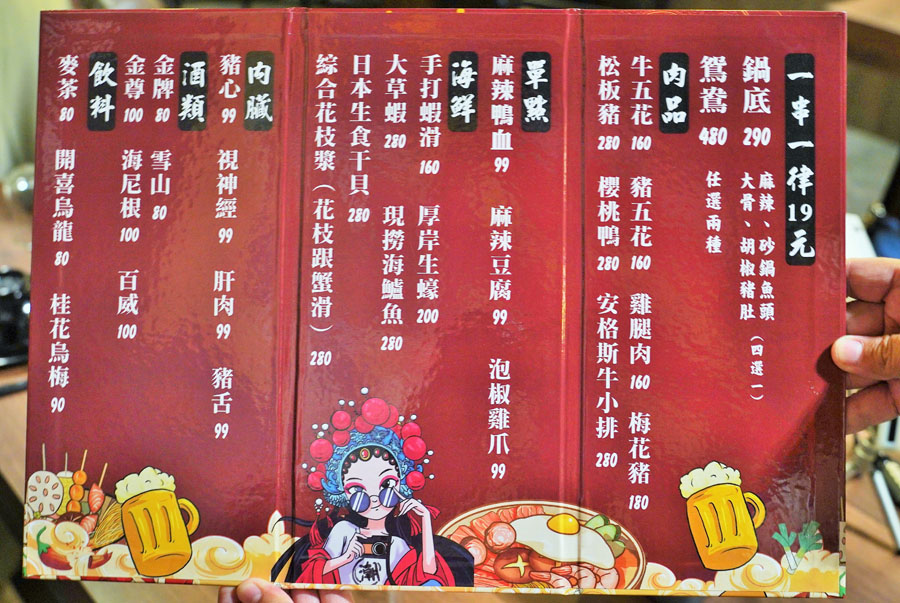 一串一律19元
鍋底 290 麻辣、砂鍋魚頭
大骨、胡椒豬肚(四選一)
鴛鴦 480 任選兩種
肉品
牛五花 160 豬五花 160 雞腿肉 160 梅花豬 180
松板豬 280 櫻桃鴨 280 安格斯牛小排 280
單點
麻辣鴨血 99 麻辣豆腐 99 泡椒雞爪 99
海鮮
手打蝦滑 160 厚岸生蠔 200
大草蝦 280 現撈海鱸魚 280
日本生食干貝 280
綜合花枝漿(花枝跟蟹滑) 280
內臟
豬心 99 視神經 99 肝肉 99 豬舌 99
酒類
金牌 80 雪山 80
金尊 100 海尼根 100 百威 100
飲料
麥茶 80 開喜烏龍 80 桂花烏梅 90
潮